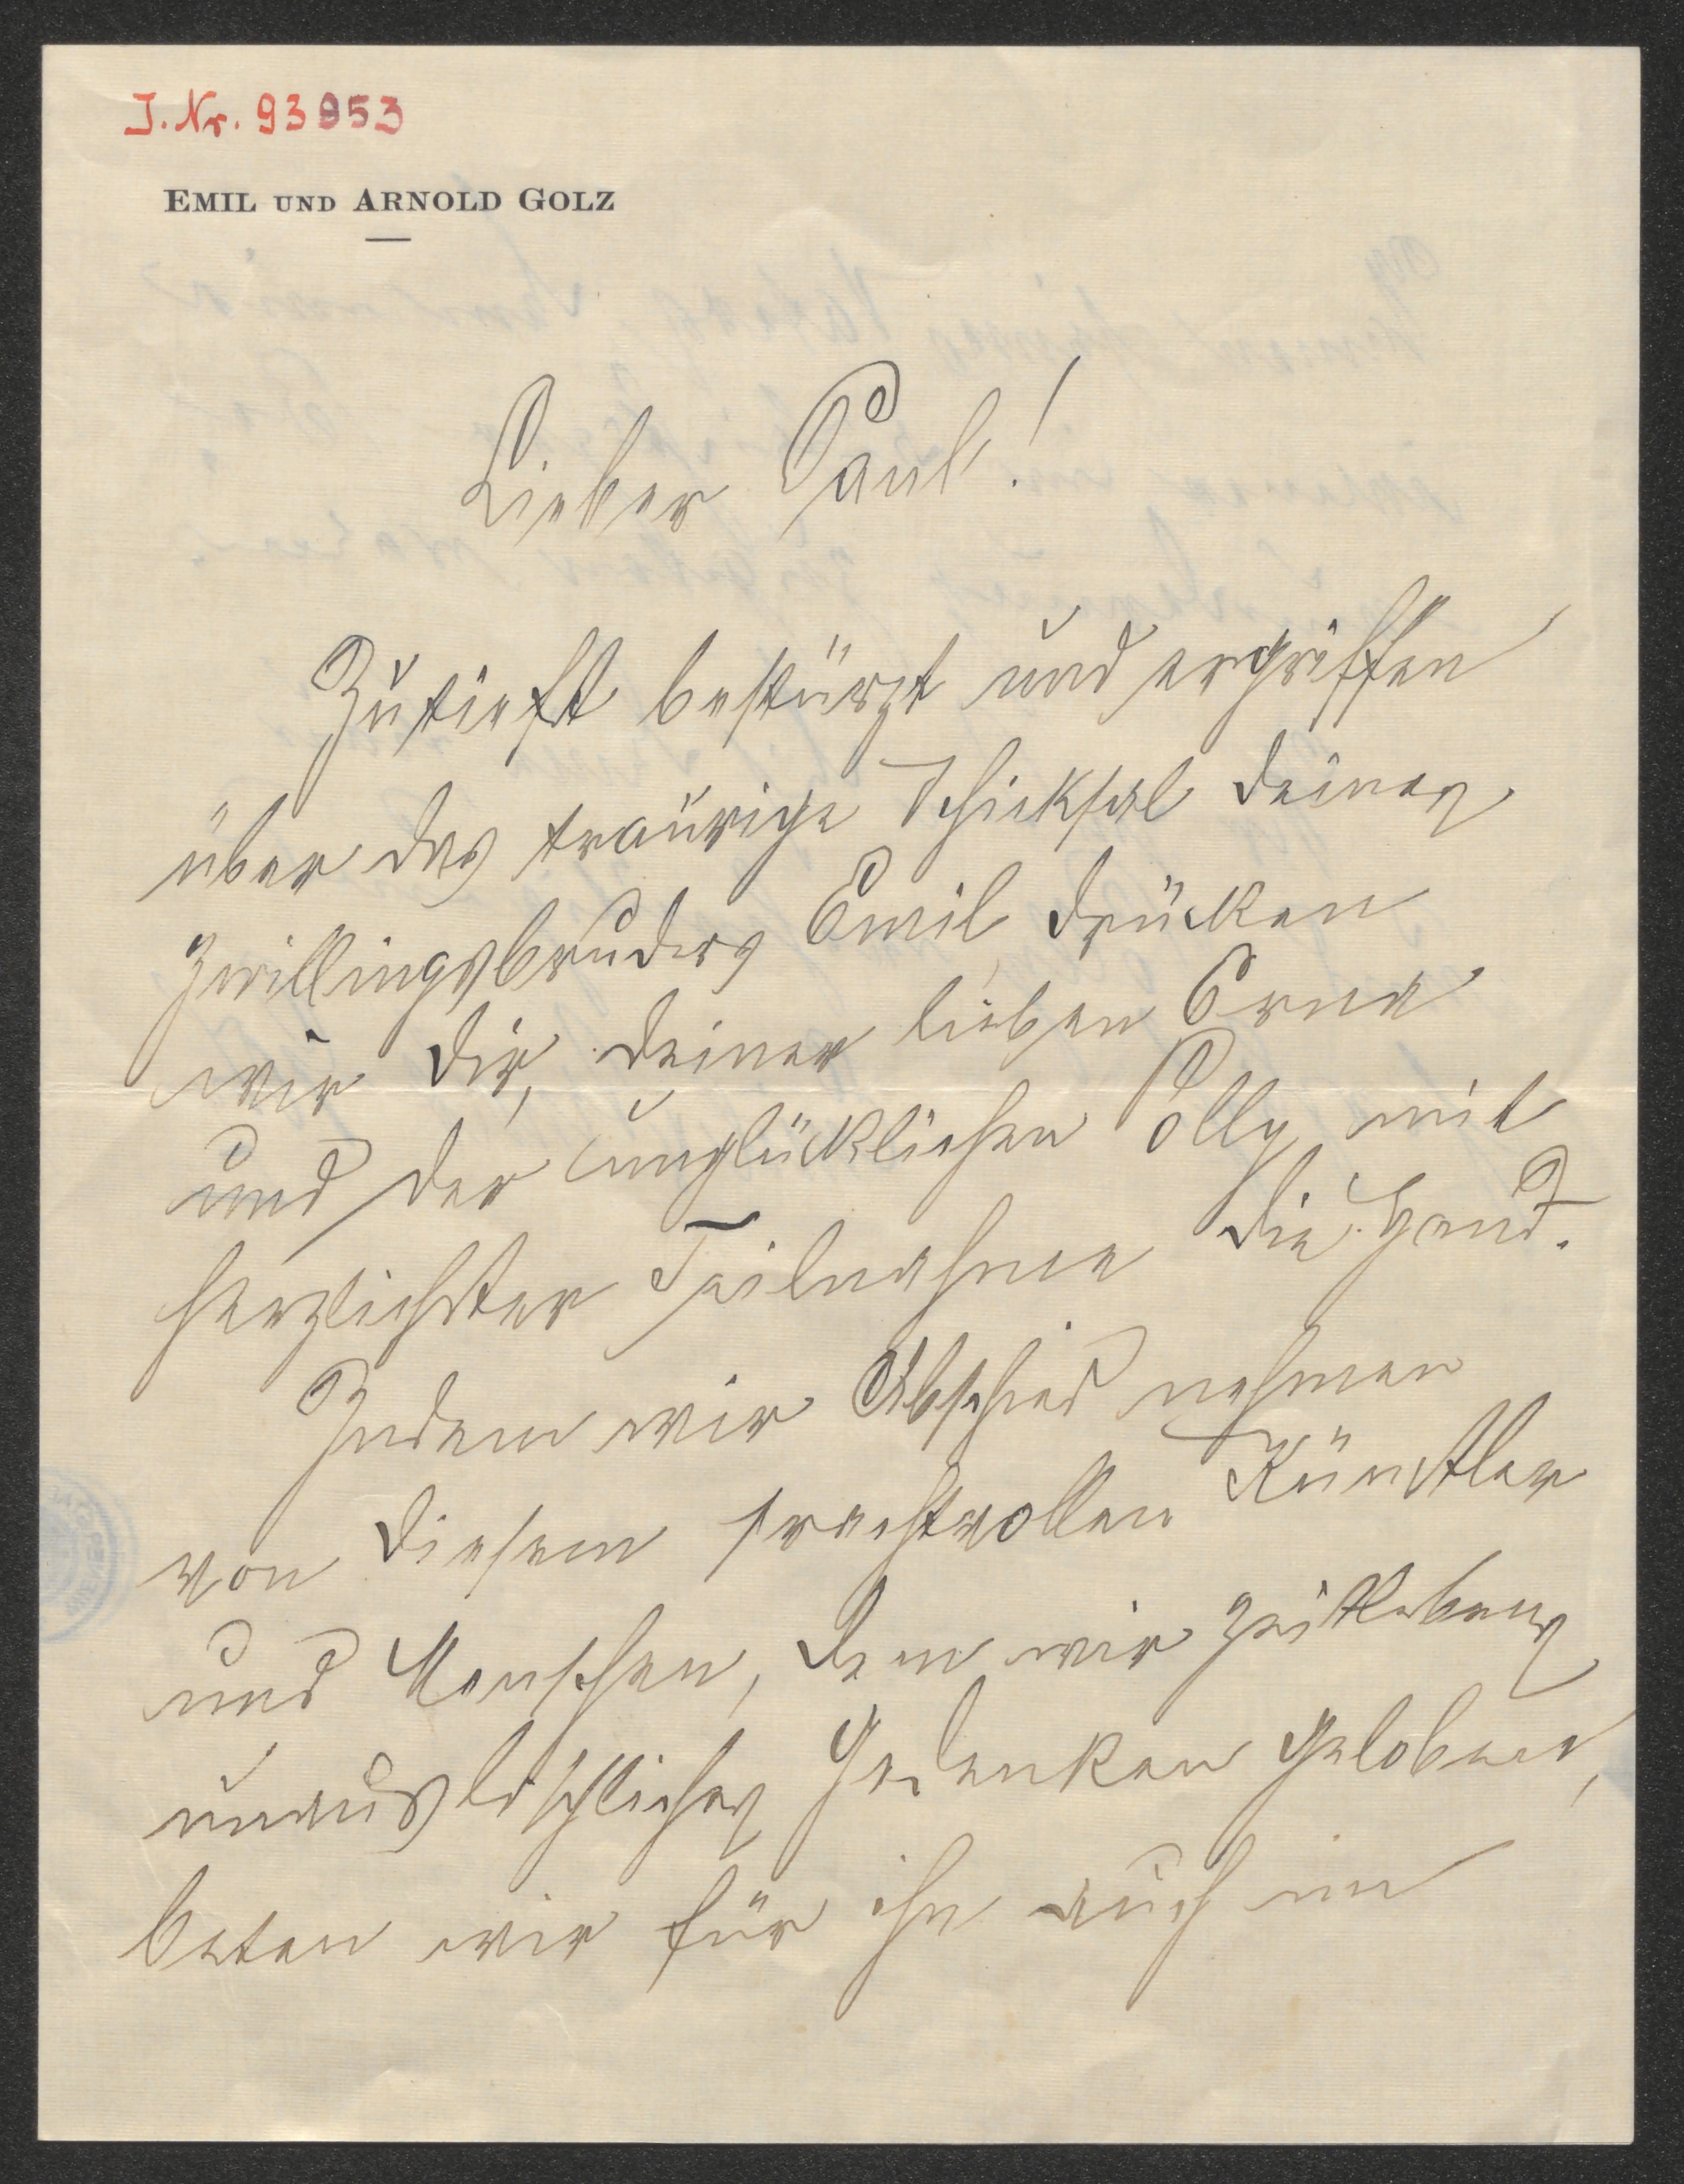 J. Nr. 93953
EMIL UND ARNOLD GOLZ
Lieber Paul!
Zutiefst bestürzt und ergriffen
über das traurige Schicksal deines
Zwillingsbruders Emil, drücken
wir dir, deiner lieben Erna
und der unglücklichen Polly mit
herzlichster Teilnahme die Hand.
Indem wir Abschied nehmen
von diesem prachtvollen Künstler
und Menschen, dem wir zeitlebens
unauslöschliches Gedenken geloben,
beten wir für ihn auch im